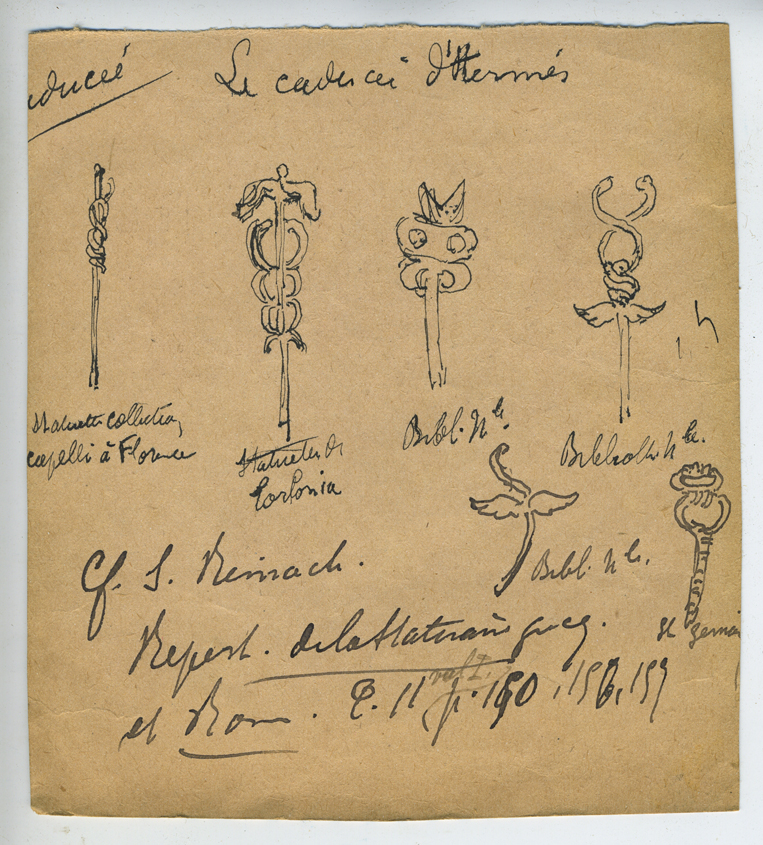 aducéé
Le caducéé d'Hermés
Statuette collection
capelli à Florence
Statuette de
Torlonia
Bibl. Nle.
Biblioth Nle.
Bibl. Nle.
St Germain
Cf. S. Reinach.
Repert. de la Statuaire grecq.
et Rom. T. II vol I. p. 150, 156, 157